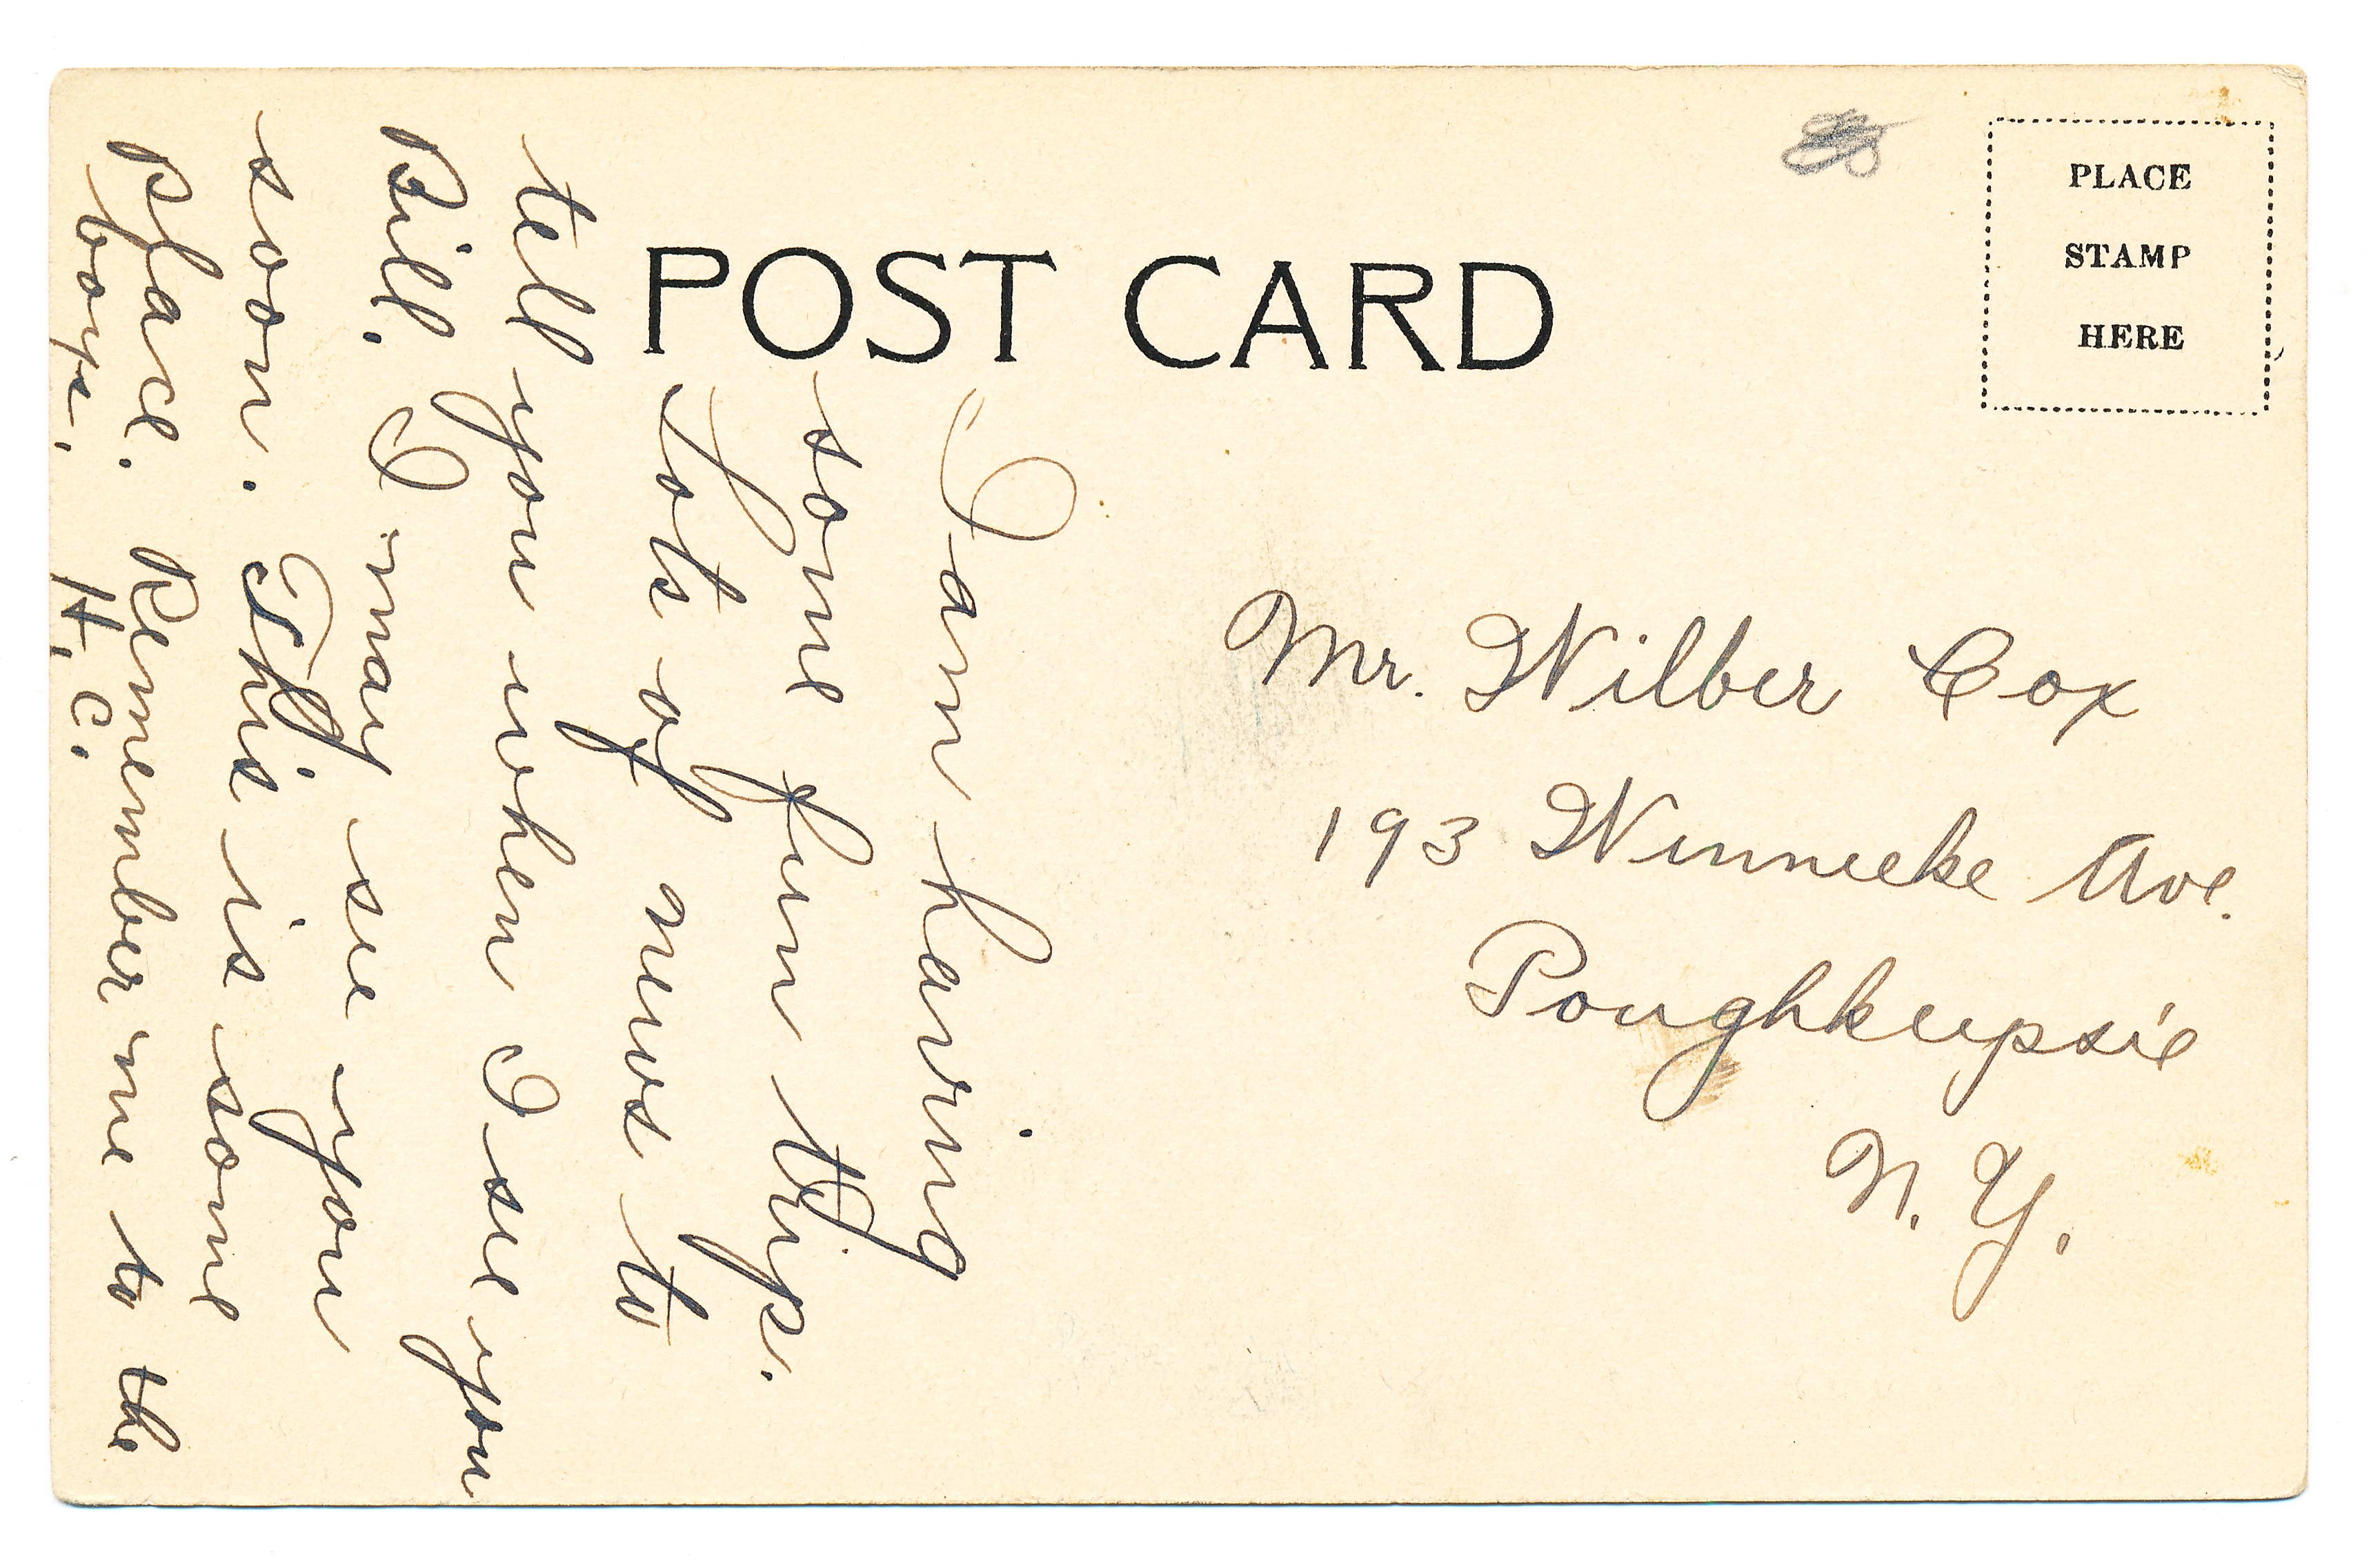 POST CARD
PLACE
STAMP
HERE
I am having
some fun trip.
Lots of news to
tell you when I see you
Bill. I may see you
soon. This is some
place. Remember me to the
boys. H. C.
Mr. Wilber Cox
193 Winneeke Ave.
Poughkeepsie
N. Y.